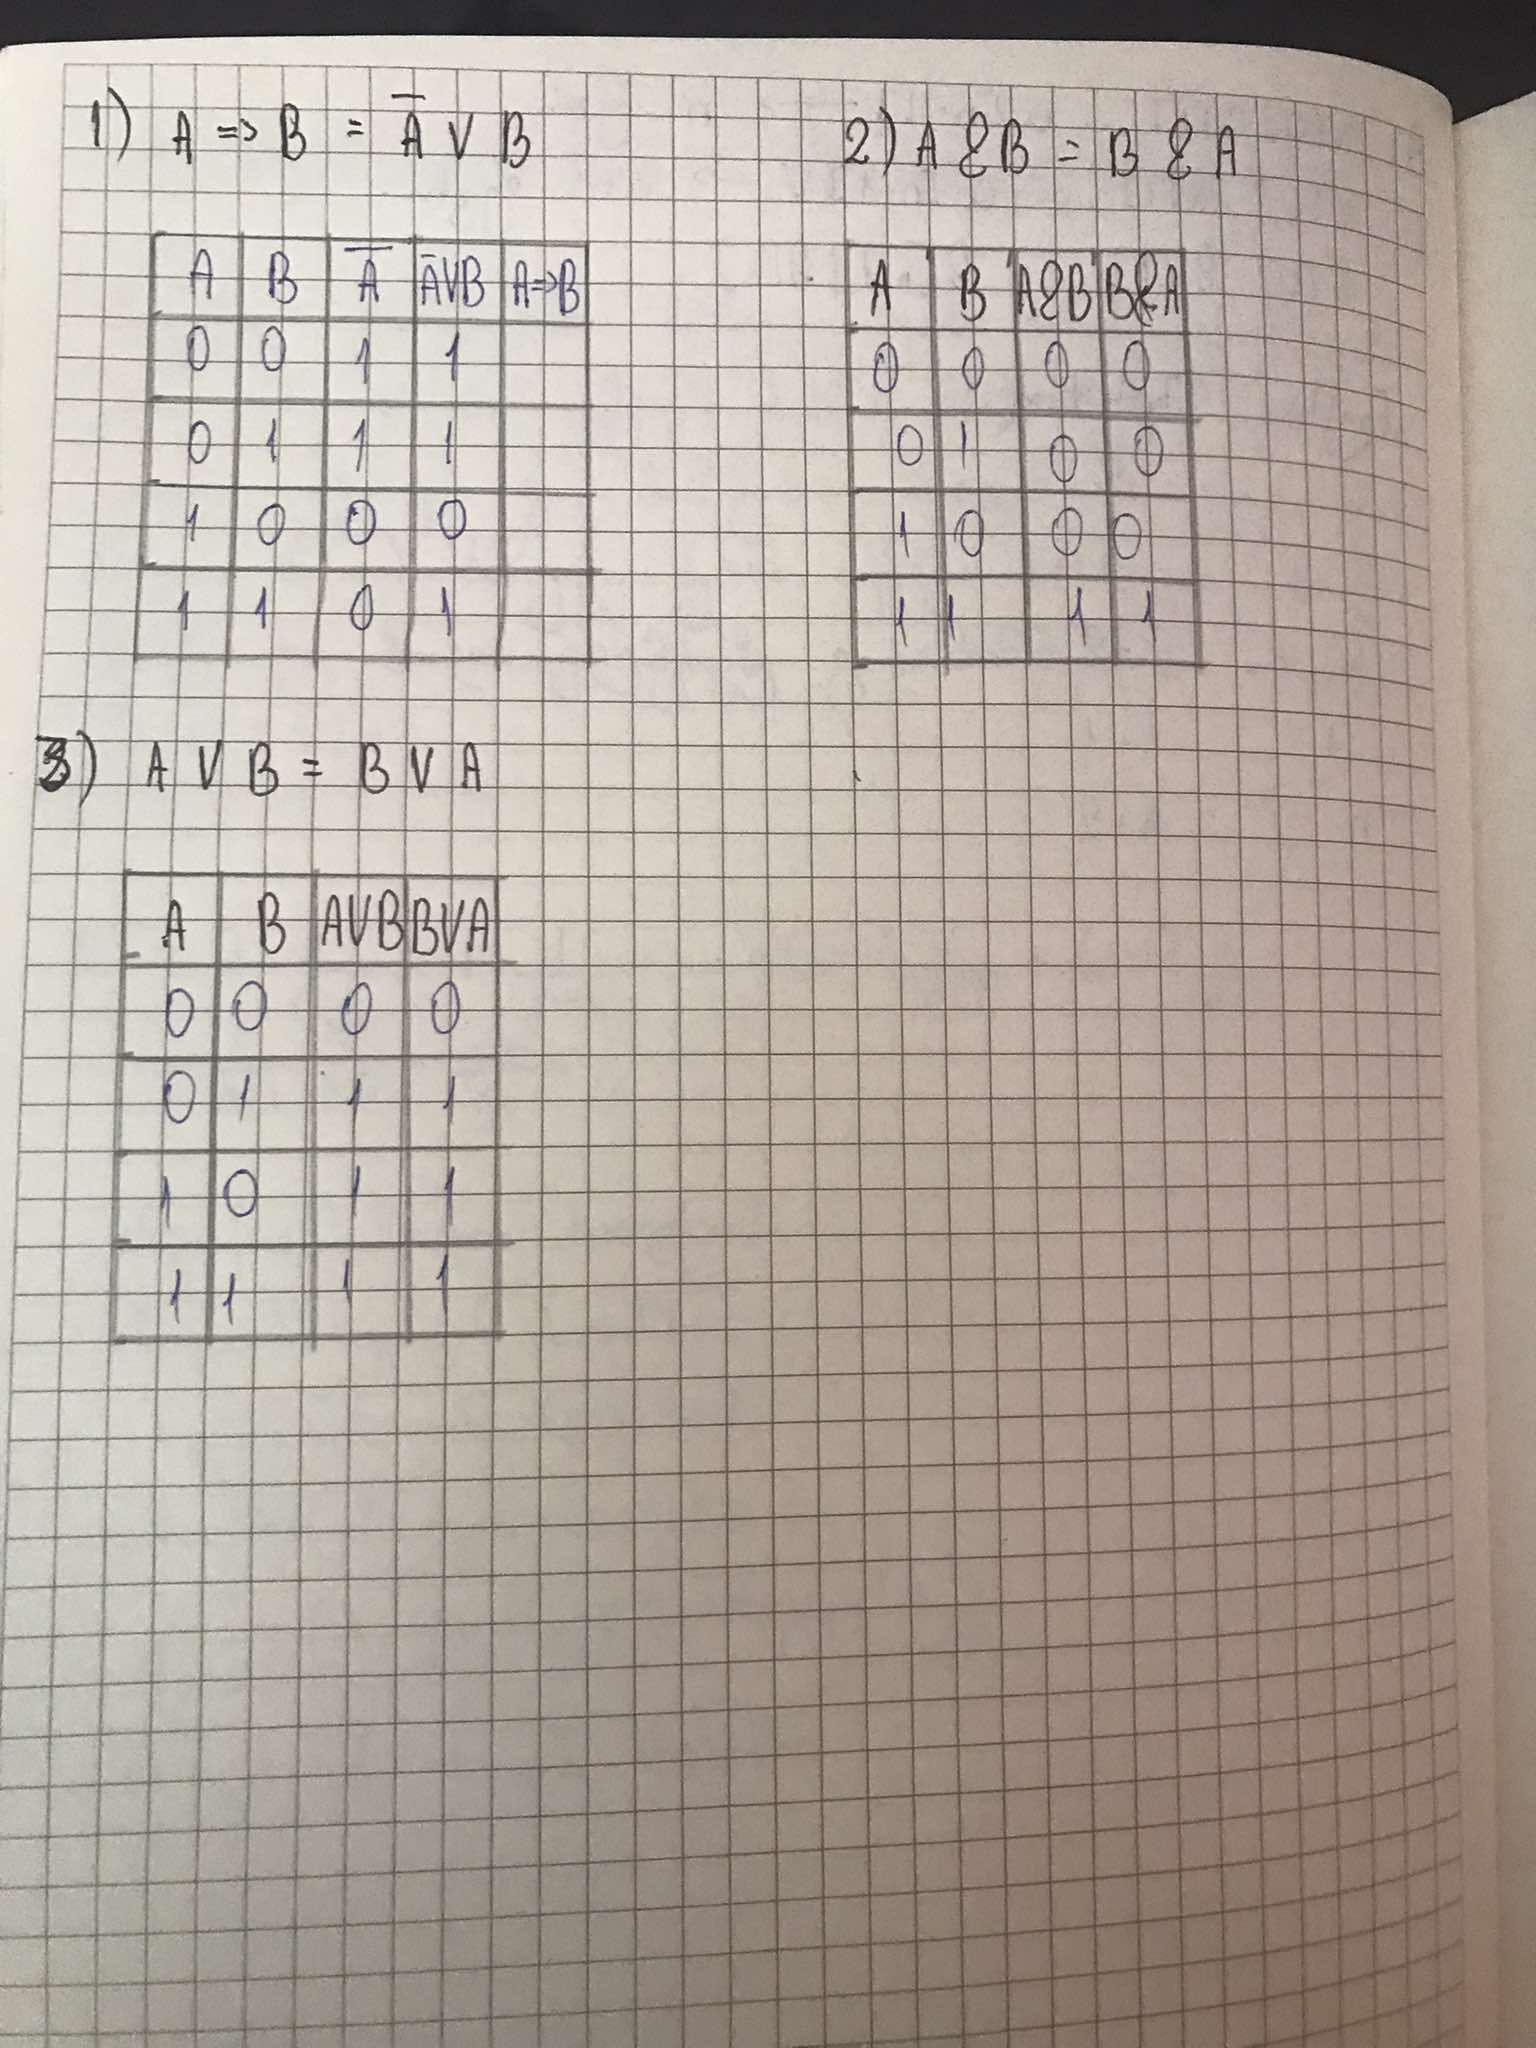 1) A => B = A̅ V B
2) A & B = B & A
A B A̅ A̅VB A=>B
0 0 1 1
0 1 1 1
1 0 0 0
1 1 0 1
A B A&B B&A
0 0 0 0
0 1 0 0
1 0 0 0
1 1 1 1
3) A V B = B V A
A B AVB BVA
0 0 0 0
0 1 1 1
1 0 1 1
1 1 1 1